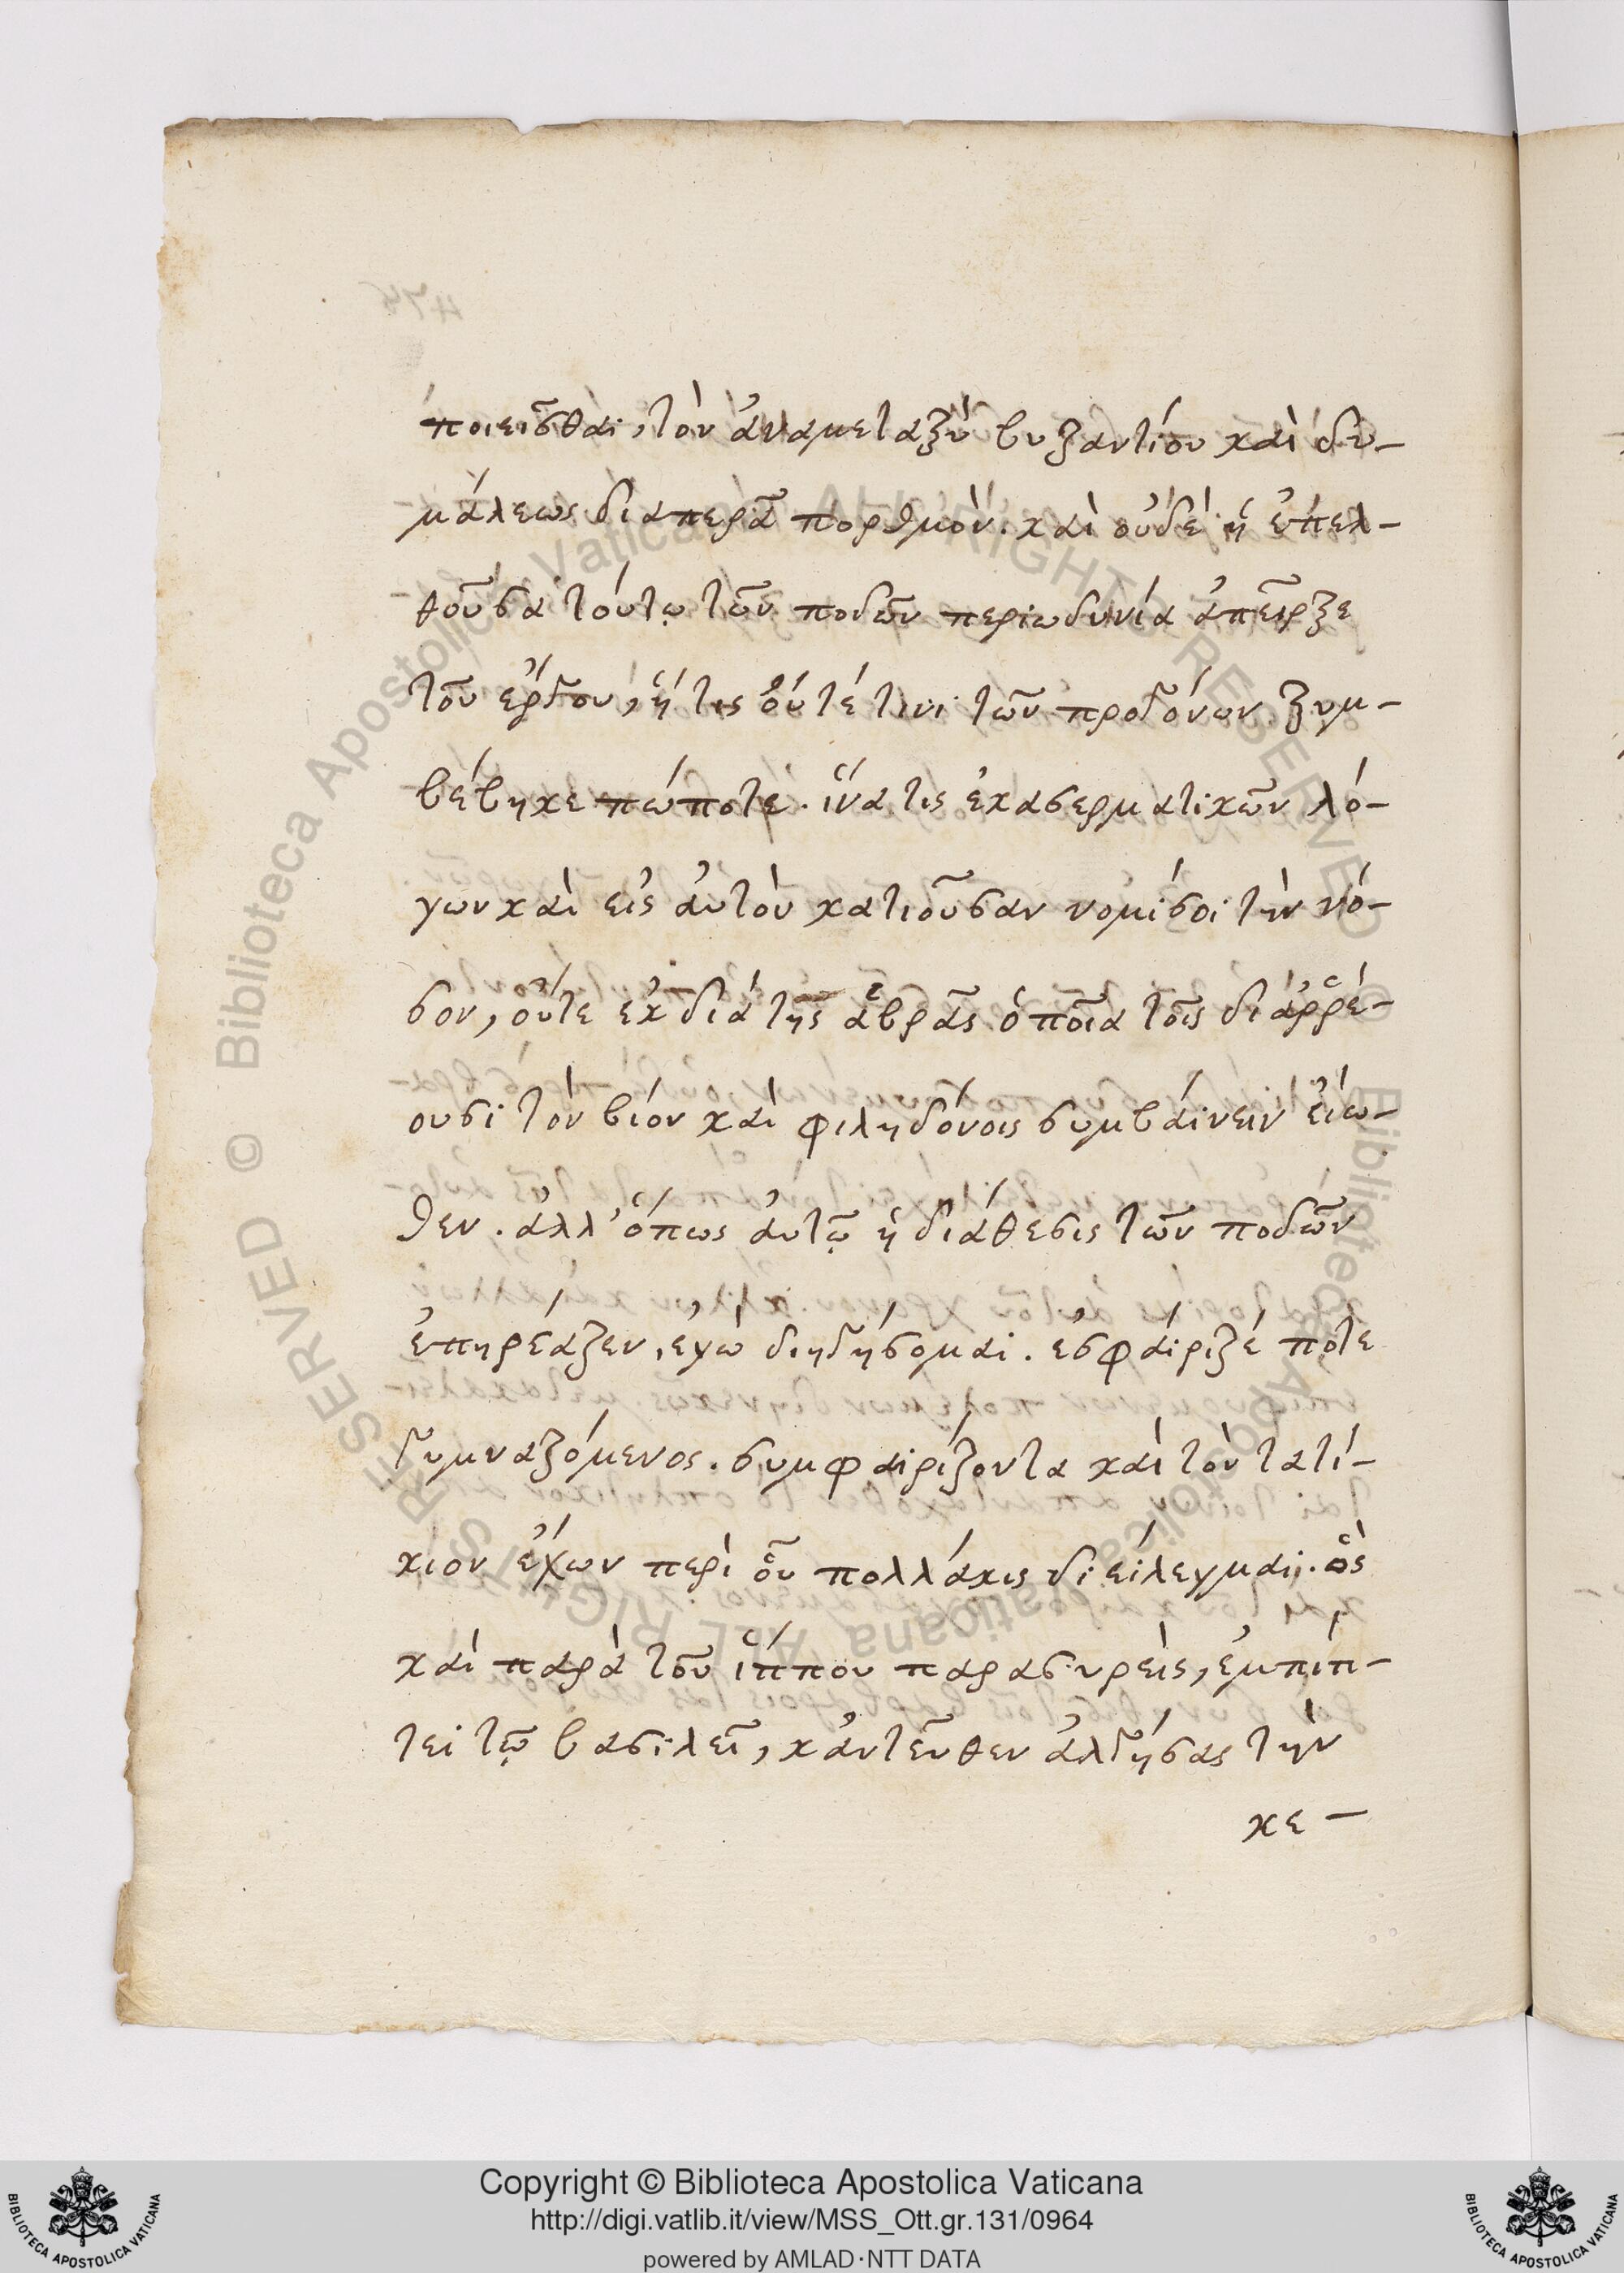 ποιεῖσθαι, τὸν ἀναμεταξὺ βυζαντίου καὶ δα-
μάλεως διαπερᾶ πορθμὸν. καὶ οὐδὲ ἡ ἐπελ-
θοῦσα τούτῳ τῶν ποδῶν περιωδυνία ἀπεῖρξε
τοῦ ἔργου, ἥ τις οὔτέ τινι τῶν προγόνων ξυμ-
βέβηκε πώποτε. ἵνα τις ἐκ σπερματικῶν λό-
γων καὶ εἰς ἀυτὸν κατιοῦσαν νομίσοι τὴν νό-
σον, οὔτε ἐκ διάτης ἁβρᾶς ὁποῖα τοῖς διαῤῥέ-
ουσι τὸν βίον καὶ φιληδόνοις συμβαίνειν εἴω-
θεν. ἀλλ' ὅπως ἀυτῷ ἡ διάθεσις τῶν ποδῶν
ἐπηρέαζεν, ἐγὼ διηγήσομαι. ἐσφαίριζέ ποτε
γυμναζόμενος. συμφαιρίζοντα καὶ τὸν τατί-
κιον ἔχων περὶ οὗ πολλάκις διείλεγμαι. ὃς
καὶ παρὰ τοῦ ἵππου παρασυρεὶς, ἐμπίπ-
τει τῷ βασιλεῖ, κἀντεῦθεν ἀλγήσας τὴν
κε-
Copyright © Biblioteca Apostolica Vaticana
http://digi.vatlib.it/view/MSS_Ott.gr.131/0964
powered by AMLAD·NTT DATA